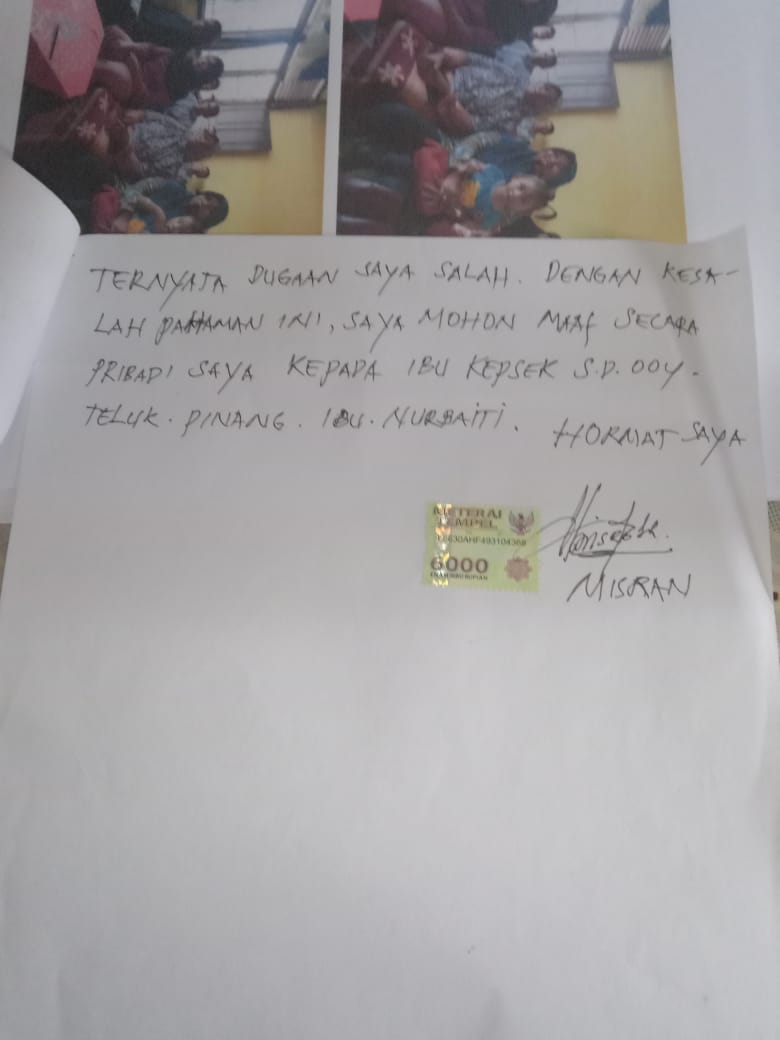 TERNYATA DUGAAN SAYA SALAH. DENGAN KESA-
LAH PAHAMAN INI, SAYA MOHON MAAF SECARA
PRIBADI SAYA KEPADA IBU KEPSEK S.D. 004.
TELUK. PINANG. IBU. NURBAITI. HORMAT SAYA
METERAI
TEMPEL
6000
ENAM RIBU RUPIAH
MISRAN